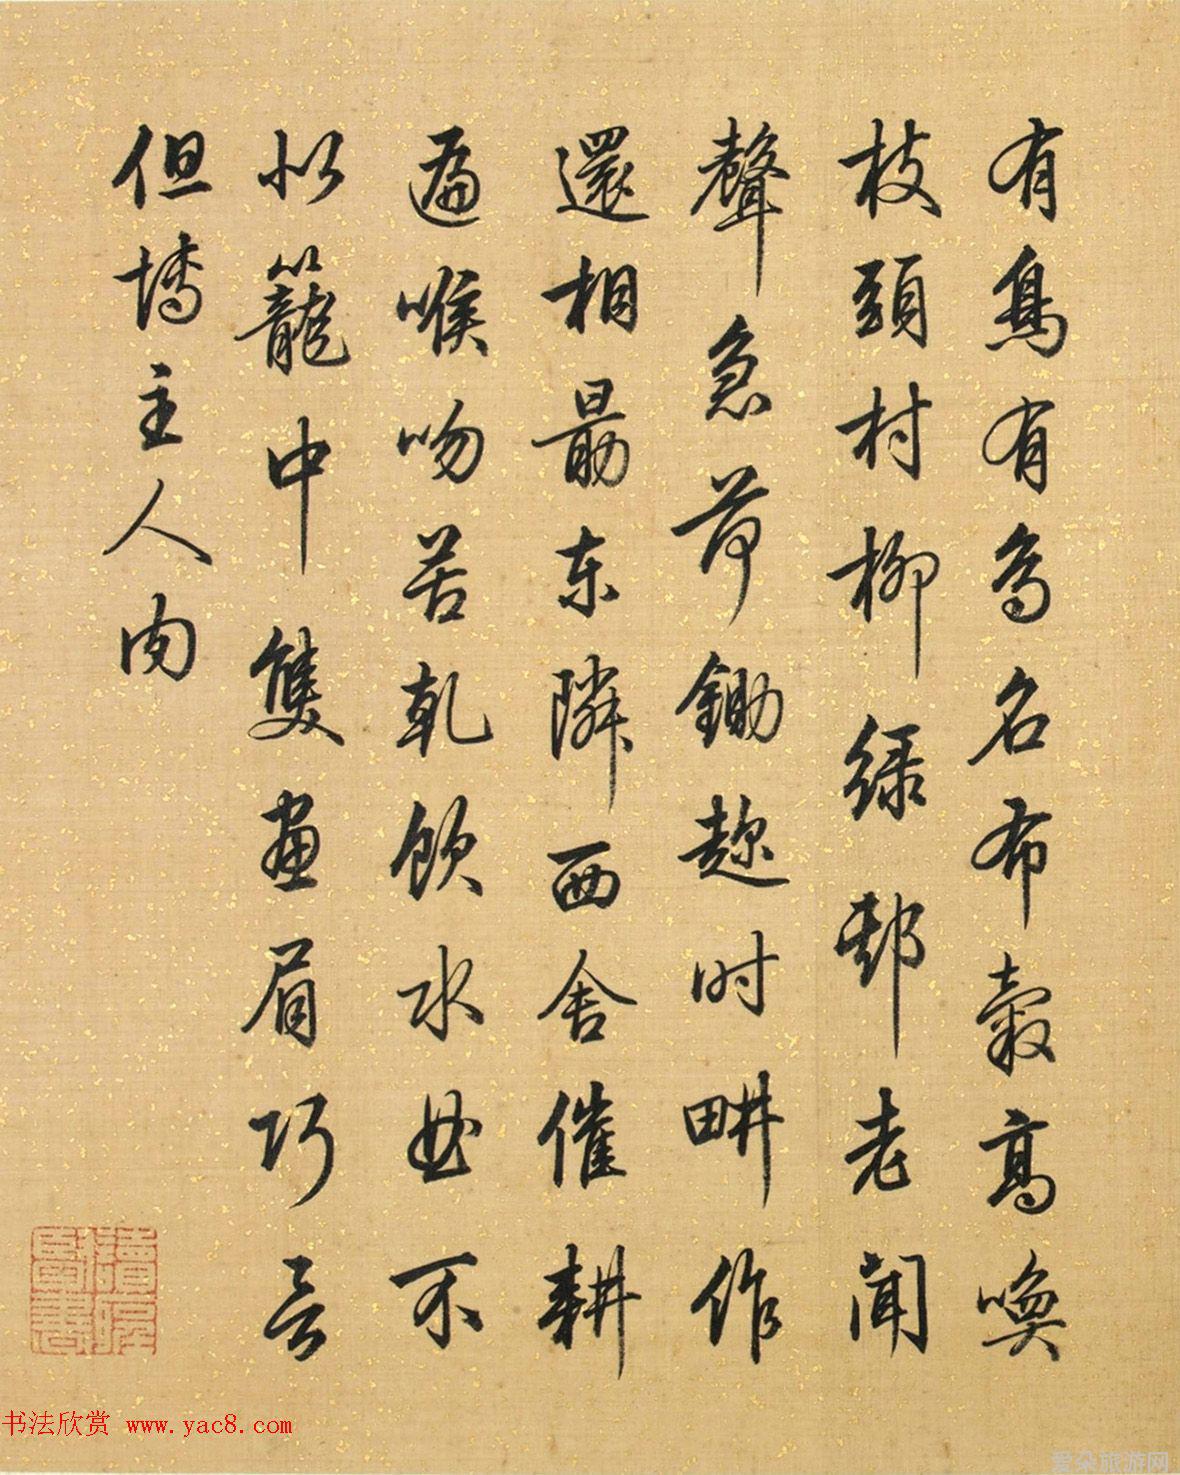 有鳥有鳥名布穀高喚
枝頭村柳綠邨老聞
聲急荷鋤趂時畊作
還相勗东隣西舍催耕
遍喉吻苦乹飲水不
似籠中雙畫眉巧言
但主人肉
书法欣赏 www.yac8.com
爱朵旅游网